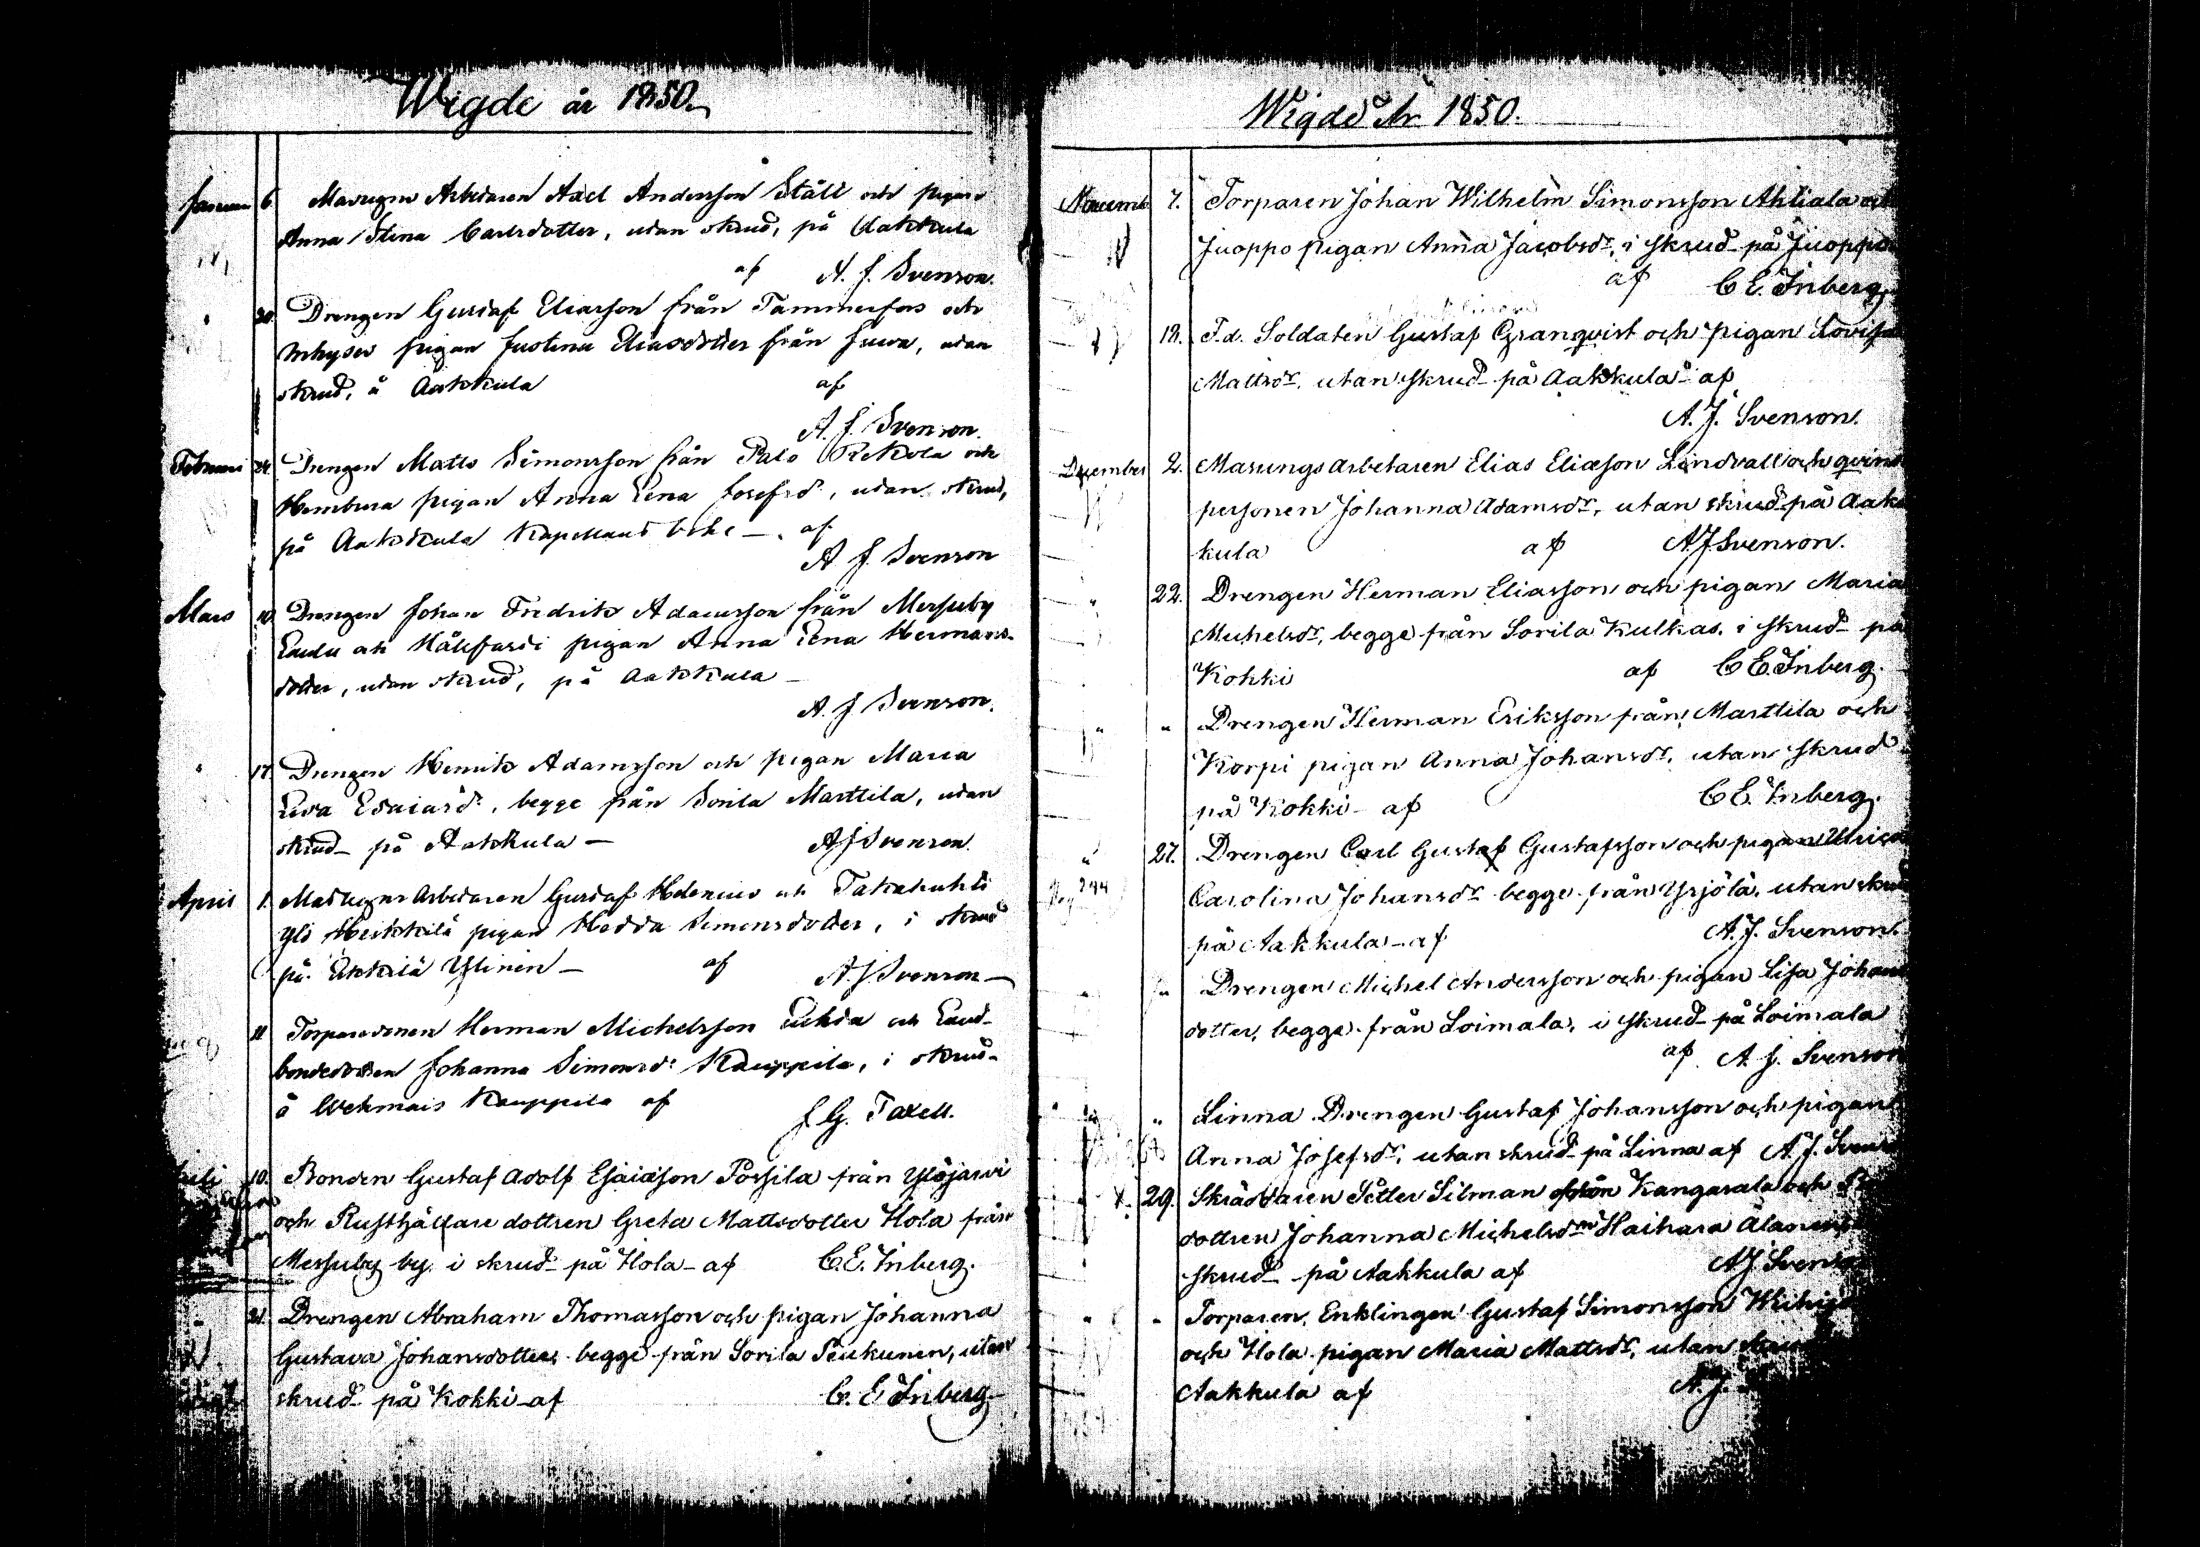 Wigde år 1850.
Januari 6. Masugns Arbetaren Axel Andersson Ståll och pigan
Anna Stina Carlsdotter, utan skrud, på Aakkula
af A. J. Svenson.
" 20. Drengen Gustaf Eliasson från Tammerfors och
Inhyses pigan Justina Eliasdotter från, utan
skrud, å Aakkula af
A. J. Svenson.
Februari 24. Drengen Matts Simonsson från Palo och
pigan Anna Lena Josefsdr, utan skrud,
på Aakkula Kapellans af
A. J. Svenson
Mars 10. Drengen Johan Fredrik Adamsson från Messuby
och pigan Anna Lena Hermans-
dotter, utan skrud, på Aakkula –
A. J. Svenson.
" 17. Drengen Henrik Adamsson och pigan Maria
Lisa Esaiasdr, begge från Sorila Marttila, utan
skrud på Aakkula – A J Svenson.
April 1. Masugns Arbetaren Gustaf Helenius och Takahuhti
Yli Heikkilä pigan Hedda Simonsdotter, i skrud
på Ylinen – af A. J. Svenson –
11 Torparesonen Herman Michelsson och Land-
bondedottren Johanna Simonsdr Kauppila, i skrud
å Wehmais Kauppila af J. G. Taxell.
10. Bonden Gustaf Adolf Esaiasson Pörsila från Ylöjärvi
och Rusthållare dottren Greta Mattsdotter Hola från
Messuby by, i skrud på Hola – af C. E. Inberg.
21. Drengen Abraham Thomasson och pigan Johanna
Gustava Johansdotter, begge från Sorila Peukunen, utan
skrud på Kokki – af C. E Inberg
Wigde År 1850.
November 7. Torparen Johan Wilhelm Simonsson Ahliala och
Juoppo pigan Anna Jacobsdr, i skrud på Juoppo
af C E. Inberg.
18. F.d. Soldaten Gustaf Granqvist och pigan Lovisa
Mattsdr, utan skrud på Aakkula af
A. J. Svenson.
December 2. Masungs arbetaren Elias Eliason Lindvall och qvins
personen Johanna Adamsdr, utan skrud på Aak
kula af A J Svenson.
" 22. Drengen Herman Eliasson och pigan Maria
Michelsdr, begge från Sorila Kulkas, i skrud på
Kohki af C E. Inberg.
" " Drengen Herman Eriksson från Marttila och
Korpi pigan Anna Johansdr, utan skrud
på Kokki – af C E. Inberg.
" 27. Drengen Carl Gustaf Gustafsson och pigan Ulrica
Carolina Johansdr begge från Yrjölä, utan skrud
på Aakkula – af A. J. Svenson.
" " Drengen Michel Andersson och pigan Lisa Johans
dotter, begge från Loimala, i skrud på Loimala
af A. J. Svenson
" " Linna Drengen Gustaf Johansson och pigan
Anna Josefsdr, utan skrud på Linna af A. J. Sven
" 29. Skräddaren Setter Silman från Kangasala och
dottren Johanna Michelsdr Haihara
skrud på Aakkula af A J Svens
" " Torparen, Enklingen Gustaf Simonsson
och Hola pigan Maria Mattsdr, utan skrud
Aakkula af A. J.